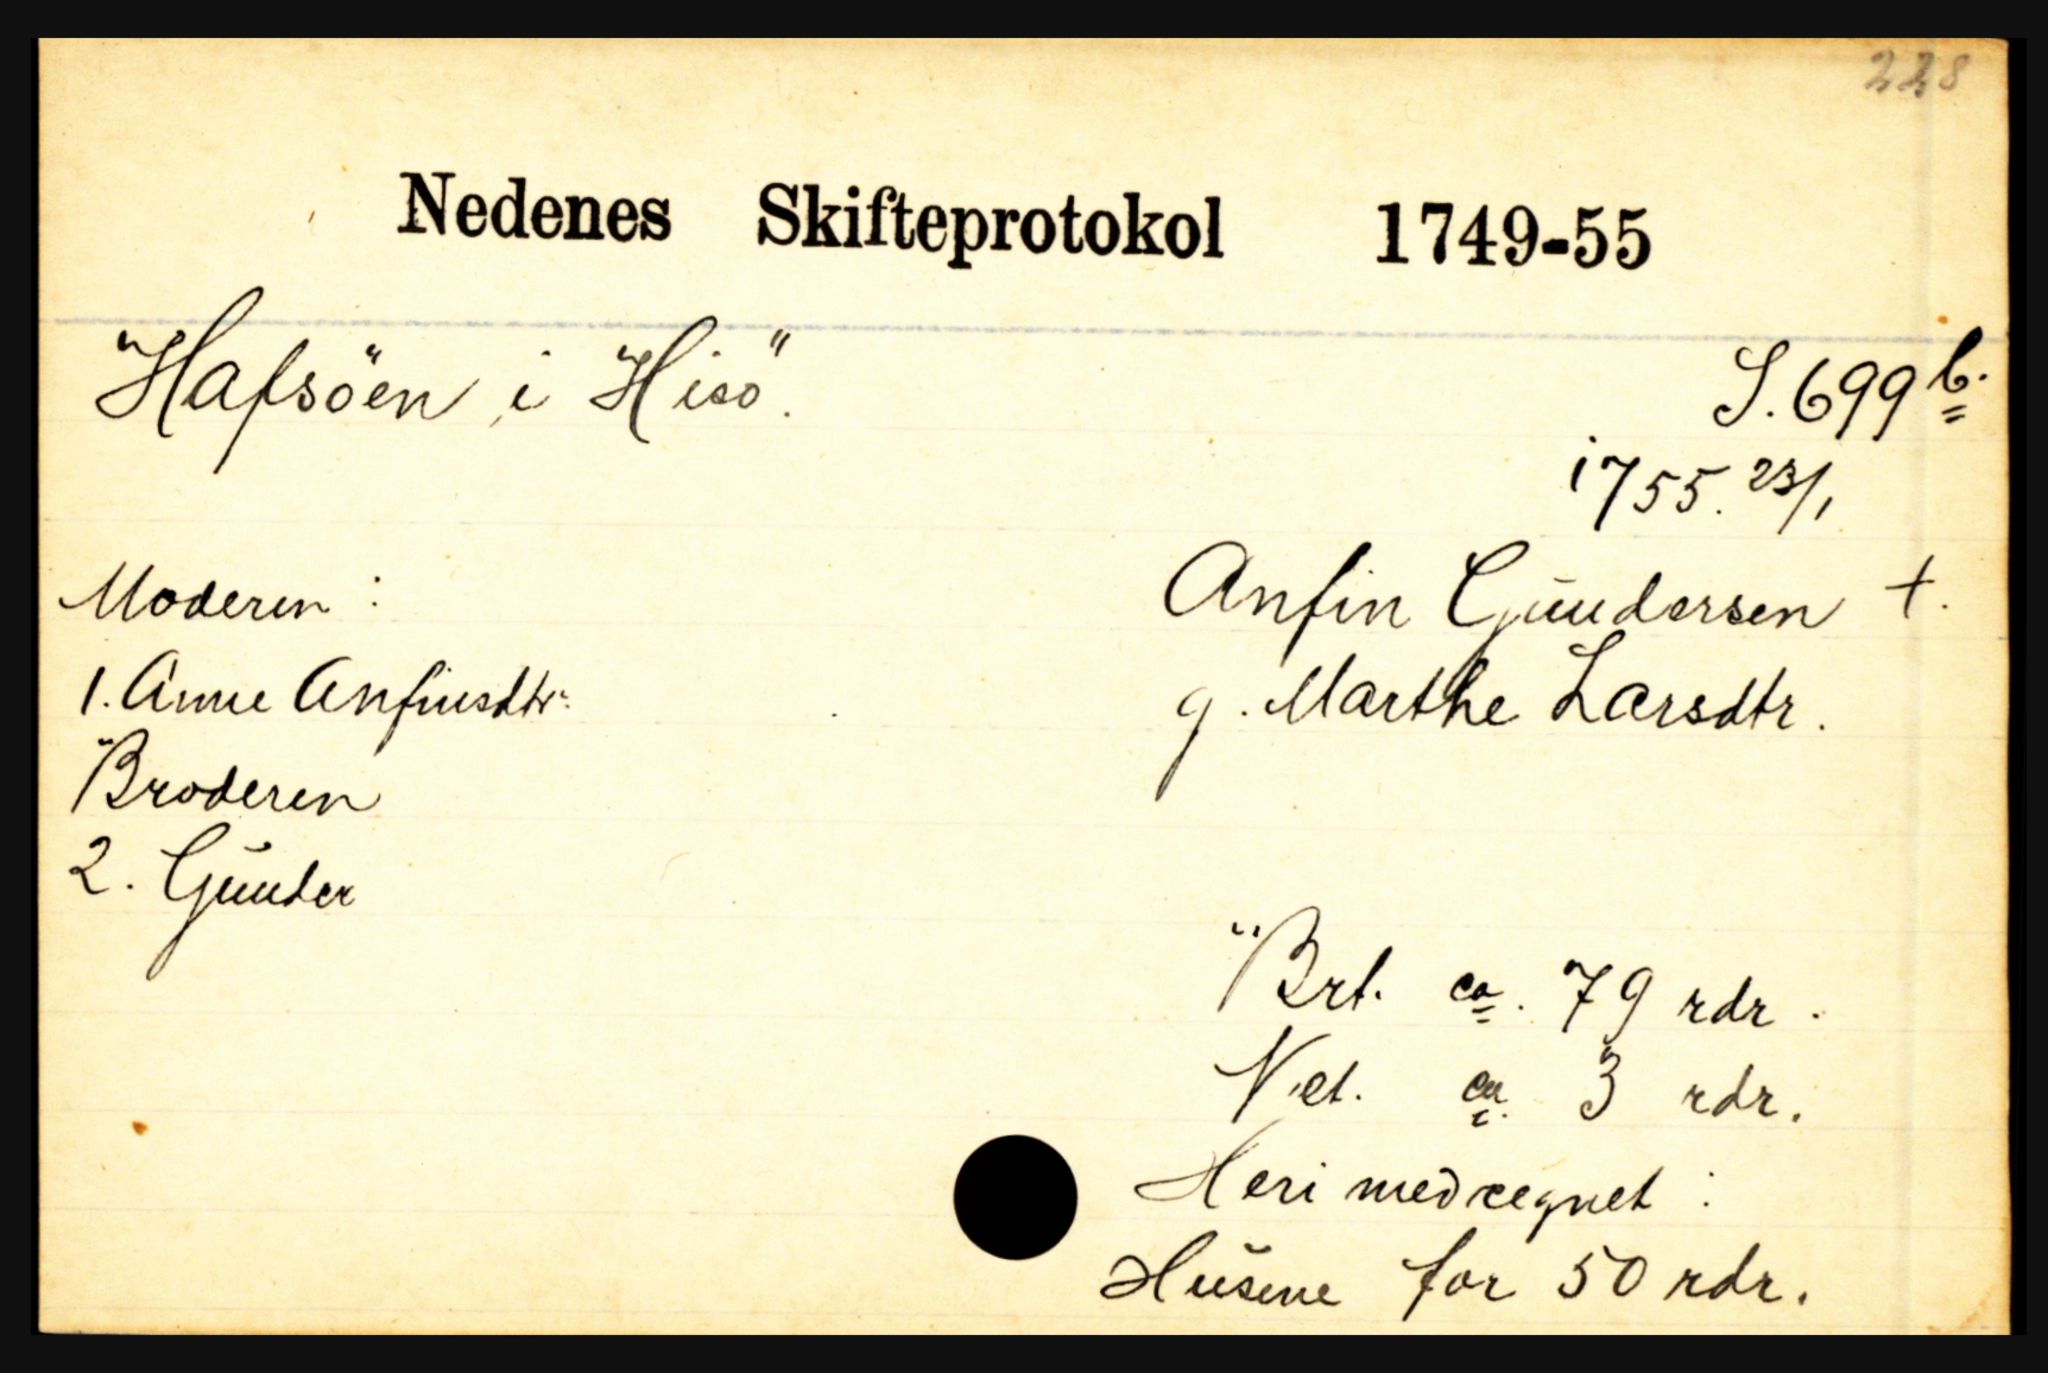 228
Nedenes Skifteprotokol 1749-55
Hafsöen i Hisö.
S. 699 b.
1755. 23/1
Moderen :
Anfin Gundersen †.
1. Anne Anfinsdtr.
g. Marthe Larsdtr.
Broderen
2. Gunder
Brt. ca. 79 rdr.
Net. ca. 3 rdr.
Heri medregnet :
Husene for 50 rdr.